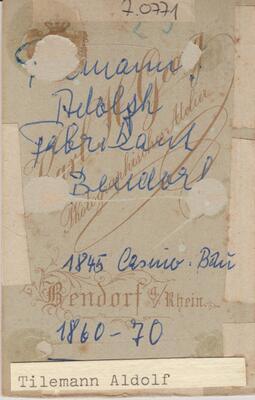 7.0771
Tilemann,
Adolph
Fabrikant
Bendorf
Photographisches Atelier
1845 Casino-Bau
Bendorf a/Rhein.
1860-70
Tilemann Aldolf